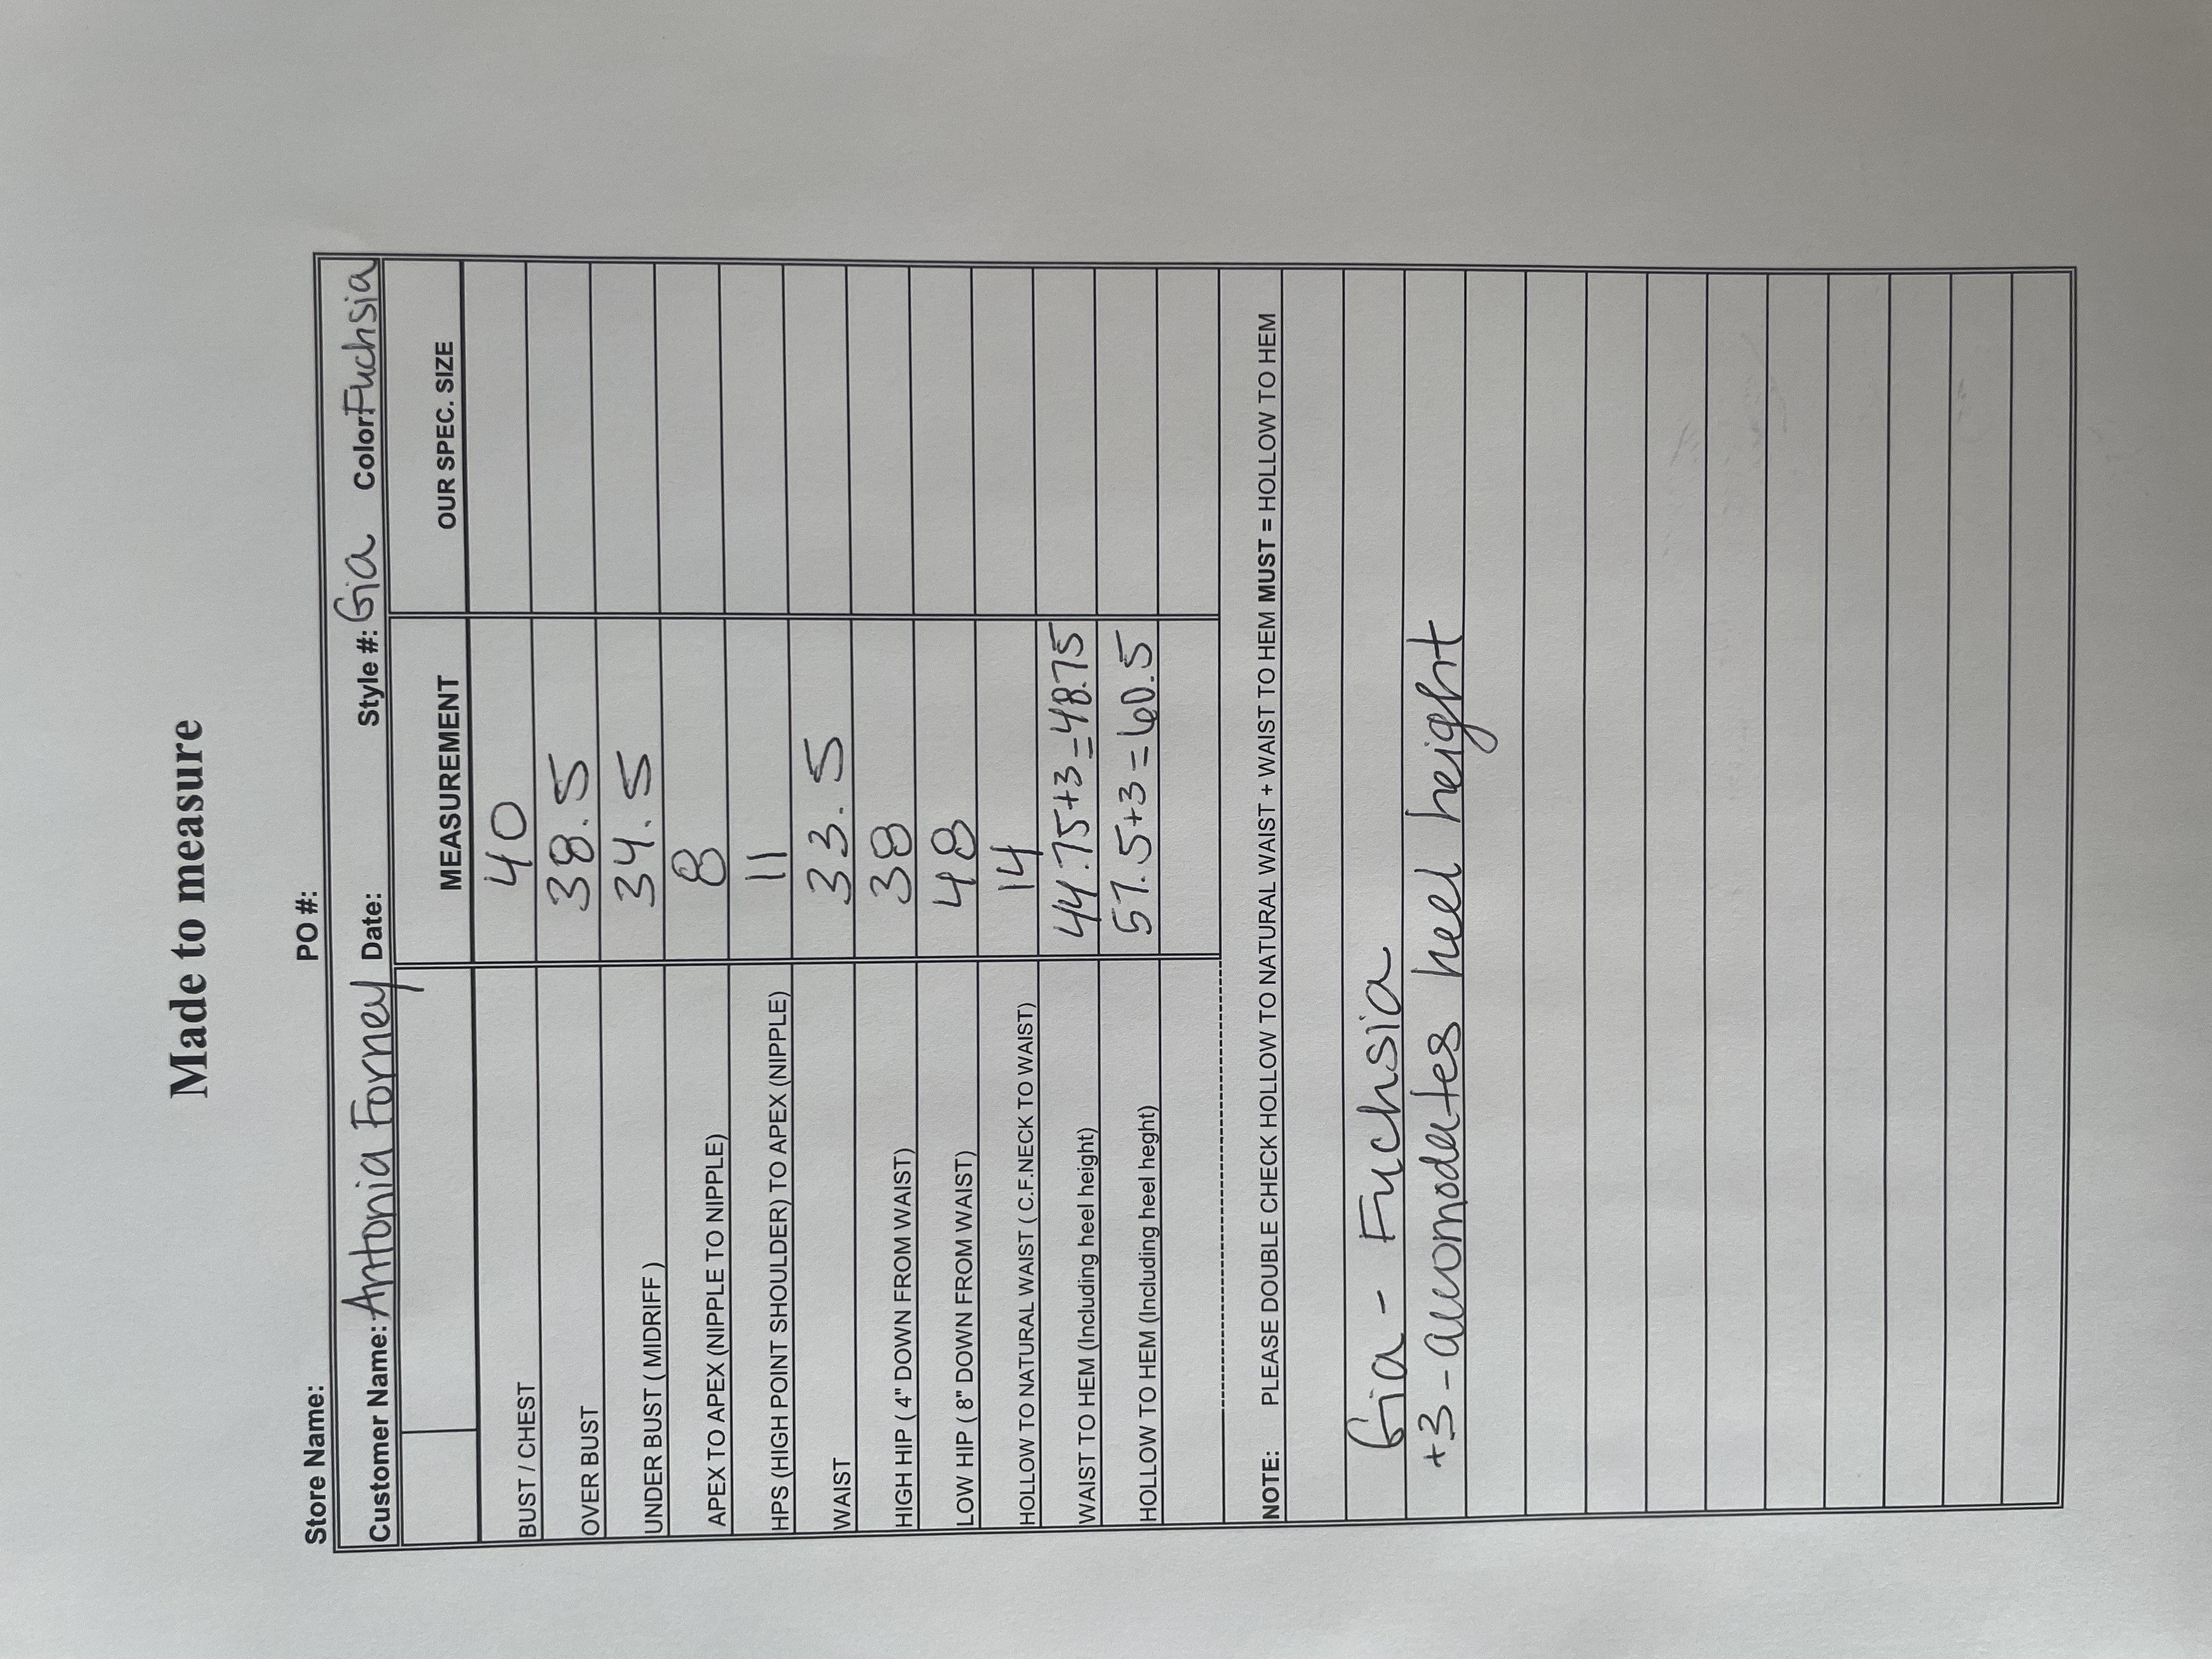 Made to measure
Store Name: PO #:
Customer Name: Antonia Forney Date: Style #: Gia Color Fuchsia
MEASUREMENT OUR SPEC. SIZE
BUST / CHEST 40
OVER BUST 38.5
UNDER BUST ( MIDRIFF ) 34.5
APEX TO APEX (NIPPLE TO NIPPLE) 8
HPS (HIGH POINT SHOULDER) TO APEX (NIPPLE) 11
WAIST 33.5
HIGH HIP ( 4" DOWN FROM WAIST) 38
LOW HIP ( 8" DOWN FROM WAIST) 48
HOLLOW TO NATURAL WAIST ( C.F.NECK TO WAIST) 14
WAIST TO HEM (Including heel height) 44.75+3=48.75
HOLLOW TO HEM (Including heel heght) 57.5+3=60.5
NOTE: PLEASE DOUBLE CHECK HOLLOW TO NATURAL WAIST + WAIST TO HEM MUST = HOLLOW TO HEM
Gia - Fuchsia
+3 - accomodates heel height